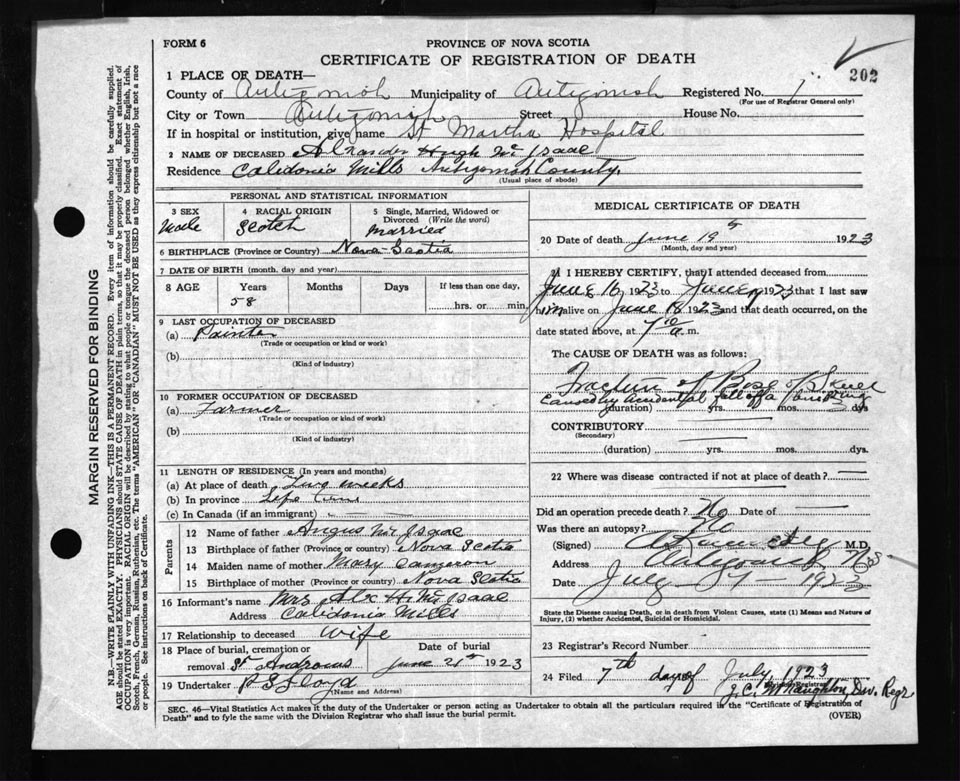 FORM 6
PROVINCE OF NOVA SCOTIA
CERTIFICATE OF REGISTRATION OF DEATH
202
1 PLACE OF DEATH—
County of Antigonish Municipality of Antigonish Registered No. 1
(For use of Registrar General only)
City or Town Antigonish Street House No.
If in hospital or institution, give name St Martha Hospital
2 NAME OF DECEASED Alexander Hugh Mc Isaac
Residence Caledonia Mills Antigonish County.
(Usual place of abode)
PERSONAL AND STATISTICAL INFORMATION
3 SEX
Male
4 RACIAL ORIGIN
Scotch
5 Single, Married, Widowed or Divorced (Write the word)
Married
6 BIRTHPLACE (Province or Country) Nova Scotia
7 DATE OF BIRTH (month, day and year)
8 AGE Years Months Days If less than one day,
58
hrs. or min.
9 LAST OCCUPATION OF DECEASED
(a) Painter
(Trade or occupation or kind or work)
(b)
(Kind of industry)
10 FORMER OCCUPATION OF DECEASED
(a) Farmer
(Trade or occupation or kind of work)
(b)
(Kind of industry)
11 LENGTH OF RESIDENCE (In years and months)
(a) At place of death Two weeks
(b) In province Life time
(c) In Canada (if an immigrant)
Parents
12 Name of father Angus Mc Isaac
13 Birthplace of father (Province or country) Nova Scotia
14 Maiden name of mother Mary Cameron
15 Birthplace of mother (Province or country) Nova Scotia
16 Informant's name Mrs Alx H. Mc Isaac
Address Calidonia Mills
17 Relationship to deceased Wife
18 Place of burial, cremation or removal St Andrews
Date of burial June 21st 1923
19 Undertaker P S Floyd
(Name and Address)
MEDICAL CERTIFICATE OF DEATH
20 Date of death June 19th 1923
(Month, day and year)
21 I HEREBY CERTIFY, that I attended deceased from
June 16 1923 to June 1923 that I last saw
him alive on June 18 1923 and that death occurred, on the
date stated above, at 7 10 a. m.
The CAUSE OF DEATH was as follows:
Fracture of Base of Skull
Caused by accidental fall off a
(duration) yrs. mos. dys
CONTRIBUTORY
(Secondary)
(duration) yrs. mos. dys.
22 Where was disease contracted if not at place of death?
Did an operation precede death? No Date of
Was there an autopsy? No
(Signed) M.D.
Address Antigonish N.S
Date July 7 — 1923
State the Disease causing Death, or in death from Violent Causes, state (1) Means and Nature of
Injury, (2) whether Accidental, Suicidal or Homicidal.
23 Registrar's Record Number
24 Filed 7th day of July, 1923
J. C. McNaughton, Div. Regr
SEC. 46—Vital Statistics Act makes it the duty of the Undertaker or person acting as Undertaker to obtain all the particulars required in the "Certificate of Registration of
Death" and to fyle the same with the Division Registrar who shall issue the burial permit.
(OVER)
MARGIN RESERVED FOR BINDING
N.B.—WRITE PLAINLY WITH UNFADING INK—THIS IS A PERMANENT RECORD. Every item of information should be carefully supplied.
AGE should be stated EXACTLY. PHYSICIANS should STATE CAUSE OF DEATH in plain terms, so that it may be properly classified. Exact statement of
OCCUPATION is very important. RACIAL ORIGIN will be described by stating to what people or tongue the deceased person belonged whether English, Irish,
Scotch, French, German, Russian, Ruthenian, etc. The terms "AMERICAN" OR "CANADIAN" MUST NOT BE USED as they express citizenship but not a race
or people. See instructions on back of Certificate.